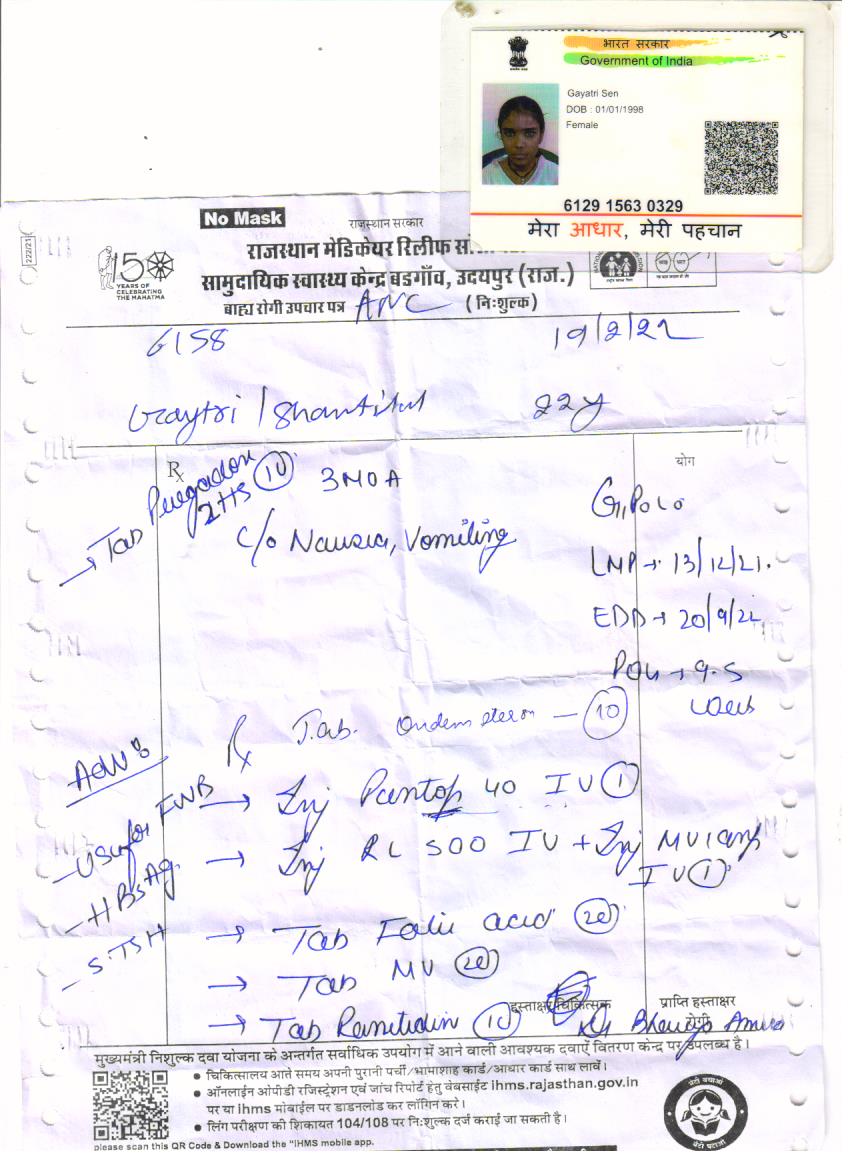 भारत सरकार
Government of India
Gayatri Sen
DOB : 01/01/1998
Female
6129 1563 0329
मेरा आधार, मेरी पहचान
222/21
No Mask
राजस्थान सरकार
राजस्थान मेडिकेयर रिलीफ
सामुदायिक स्वास्थ्य केन्द्र बडगाँव, उदयपुर (राज.)
बाह्य रोगी उपचार पत्र ANC (निःशुल्क)
150
YEARS OF
CELEBRATING
THE MAHATMA
6158 19/2/22
22y
Rx
योग
3MOA
Tab 10
2HS
C/o Nausia, Vomiting
LMP → 13/12/21.
EDD → 20/9/22
POG → 9.5
Rx Tab. Ondem steron — 10
Adv:
→ Inj Pantop 40 IV 1
- USG for FWB
→ Inj RL 500 IV + Inj MVI amp
IV 1
- HBsAg.
- S.TSH
→ Tab Folic acid 20
→ Tab MV 20
→ Tab Ranitidin 10
हस्ताक्षर चिकित्सक
प्राप्ति हस्ताक्षर
रोगी
मुख्यमंत्री निशुल्क दवा योजना के अन्तर्गत सर्वाधिक उपयोग में आने वाली आवश्यक दवाऐं वितरण केन्द्र पर उपलब्ध है।
• चिकित्सालय आते समय अपनी पुरानी पर्ची/भामाशाह कार्ड/आधार कार्ड साथ लावें।
• ऑनलाईन ओपीडी रजिस्ट्रेशन एवं जांच रिपोर्ट हेतु वेबसाईट ihms.rajasthan.gov.in
पर या Ihms मोबाईल पर डाडनलोड कर लॉगिन करे।
• लिंग परीक्षण की शिकायत 104/108 पर निःशुल्क दर्ज कराई जा सकती है।
please scan this QR Code & Download the "IHMS mobile app.
बेटी बचाओ
बेटी पढाओ